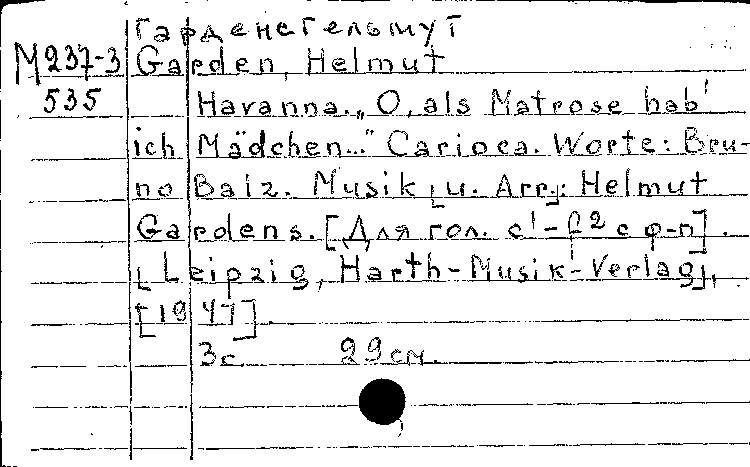 Гарденс Гельмут
М237-3 Garden, Helmut
535 Havanna. „O, als Matrose hab'
ich Mädchen..." Carioca. Worte: Bru-
no Balz. Musik [u. Arr.]: Helmut
Gardens. [Для гол. c¹-f² с ф-п].
[Leipzig, Harth-Musik-Verlag],
[1947].
3с 29см.